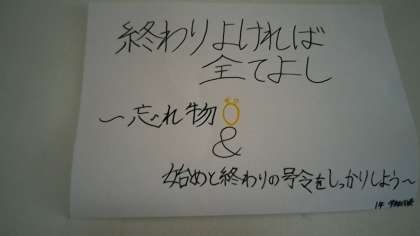 終わりよければ
全てよし
～忘れ物0
&
始めと終わりの号令をしっかりしよう～
1年